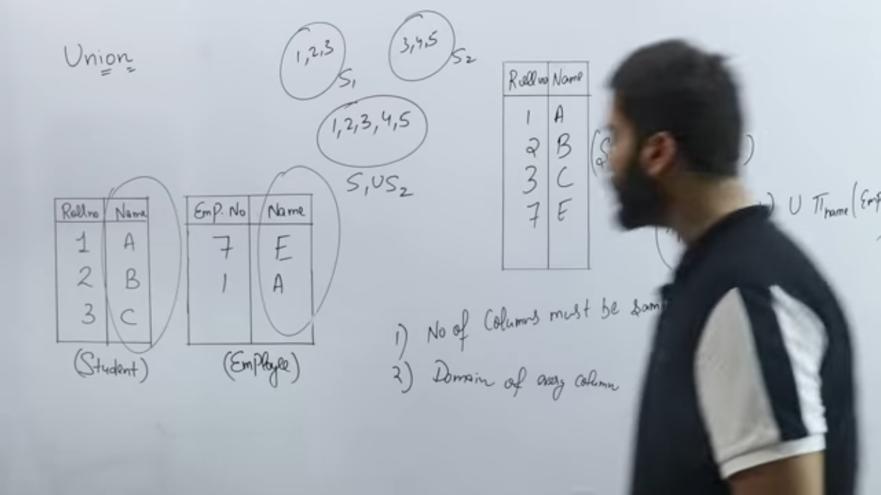 Union
1,2,3
S1
3,4,5
S2
1,2,3,4,5
S1US2
Rollno Name
1 A
2 B
3 C
(Student)
Emp. No Name
7 E
1 A
(Employee)
Rollno Name
1 A
2 B
3 C
7 E
) U πname(Emp
1) No of Columns must be sam
2) Domain of every column